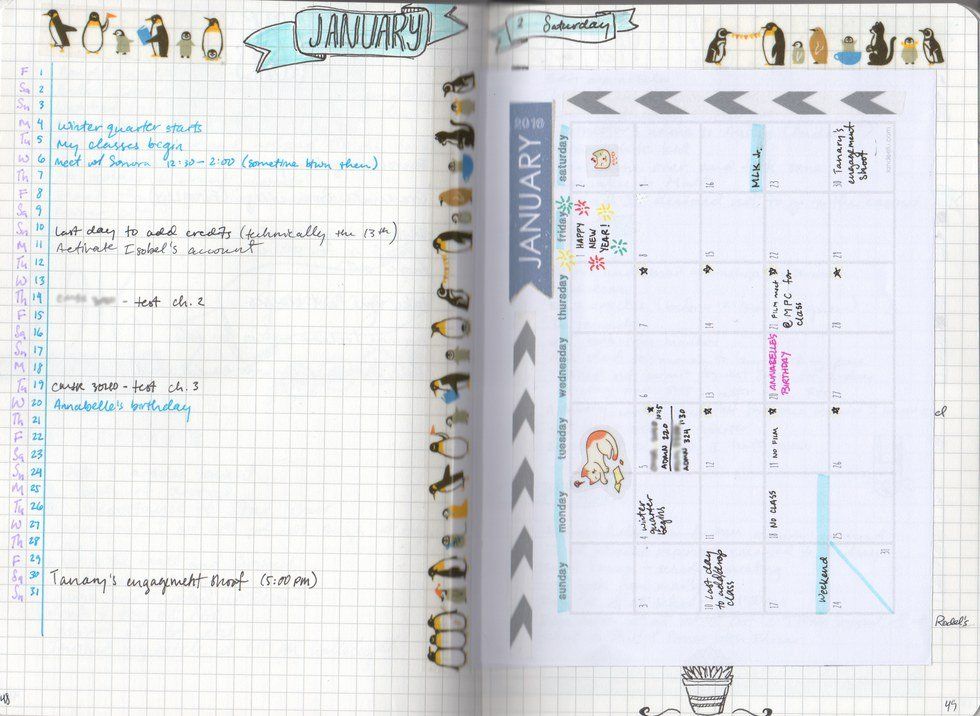 JANUARY
F 1
Sa 2
Sn 3
M 4 Winter quarter starts
Tu 5 My classes begin
W 6 Meet w/ Sonora 12:30 - 2:00 (sometime btwn then)
Th 7
F 8
Sa 9
Sn 10 Last day to add credits (technically the 13th)
M 11 Activate Isobel's account
Tu 12
W 13
Th 14 - test ch. 2
F 15
Sa 16
Sn 17
M 18
Tu 19 - test ch. 3
W 20 Annabelle's birthday
Th 21
F 22
Sa 23
Sn 24
M 25
Tu 26
W 27
Th 28
F 29
Sa 30 Tanary's engagement shoot (5:00 pm)
Sn 31
48
2 Saturday
JANUARY 2016
sunday monday tuesday wednesday thursday friday saturday
1 HAPPY
NEW
YEAR!
2
3
4 winter
quarter
begins
5
ADMN 220 10:15
ADMN 324 1:30
6
7
8
9
10 Last day
to add/drop
class
11
12
13
14
15
16
17
18 NO CLASS
19 NO FILM
20 ANNABELLE'S
BIRTHDAY
21 FILM meet
@ MPC for
class
22
23
MLK Jr.
Weekend
24
31
25
26
27
28
29
30 Tanary's
engagement
shoot
49